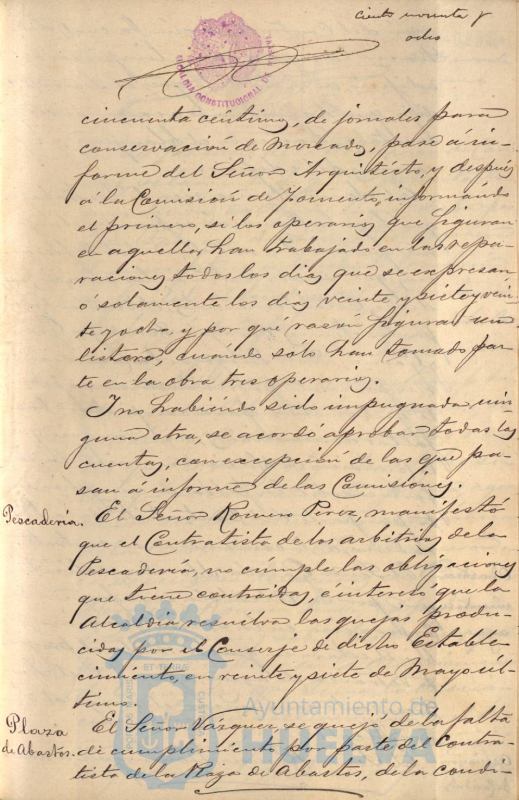 ciento noventa y
ocho
ALCALDIA CONSTITUCIONAL DE
cincuenta céntimos, de jornales para
conservación de Mercados, pase á in-
forme del Señor Arquitecto, y después
á la Comisión de Fomento, informando
el primero, si los operarios que figuran
en aquellas, han trabajado en las repa-
raciones todos los dias que se expresan
ó solamente los dias veinte y siete y vein-
te y ocho, y por qué razón figura un
listero, cuándo sólo han tomado par-
te en la obra tres operarios.
Y no habiéndo sido impugnada nin-
guna otra, se acordó aprobar todas las
cuentas, con excepción de las que pa-
san á informe de las Comisiónes.
Pescadería. El Señor Romero Perez, manifestó
que el Contratista de los arbitrios de la
Pescadería, no cumple las obligaciones
que tiene contraidas, é interesó que la
Alcaldía, resuelva las quejas produ-
cidas por el Conserje de dicho Estable-
cimiento, en veinte y siete de Mayo úl-
timo.
Plaza
de Abastos. El Señor Vazquez, se quejó de la falta
de cumplimiento por parte del Contra-
tista de la Plaza de Abastos, de la condi-
Ayuntamiento de
HUELVA